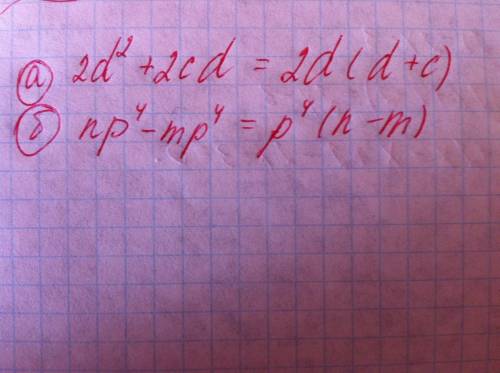 а) 2d² + 2cd = 2d(d+c)
б) np⁴ - mp⁴ = p⁴(n - m)